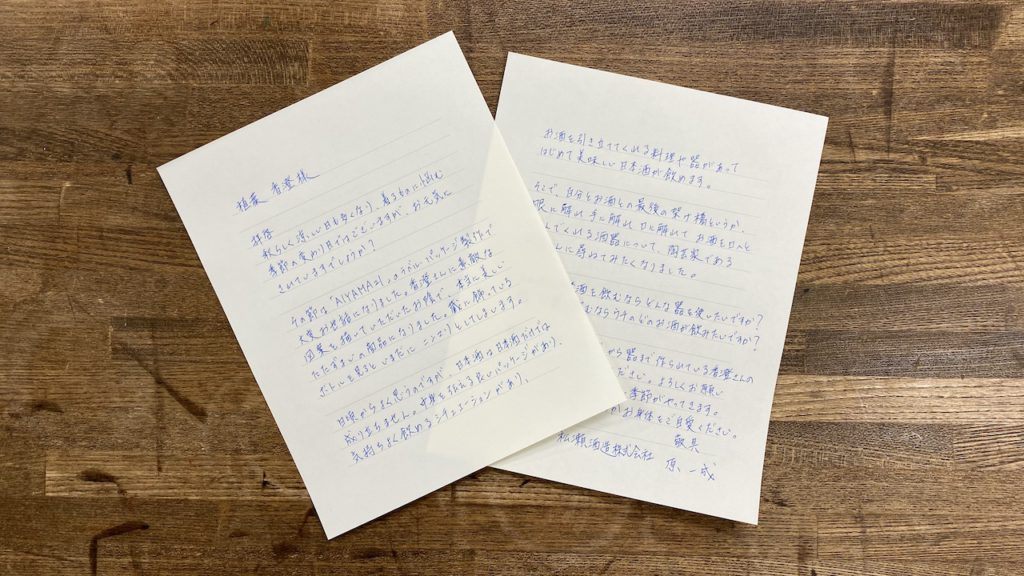 植葉 香澄様
拝啓
秋らしく涼しい日も多くなり、着るものに悩む
季節の変わり目ではございますが、お元気に
されていますでしょうか?
その節は「AIYAMA21」のラベル、パッケージ製作で
大変お世話になりました。香澄さんに素敵な
図案を描いていただいたお陰で、本当に美しい
たたずまいの商品になりました。蔵に願っている
ボトルを見るといまだに、ニンマリとしてしまいます。
日頃からよく思うのですが、日本酒は日本酒だけでは
成り立ちません。中身を伝える良いパッケージがあり、
気持ちよく飲めるシチュエーションがあり、
お酒を引き立ててくれる料理や器があって
はじめて美味しい日本酒が飲めます。
そこで、自分とお酒との最後の架け橋というか、
に触れ 手に触れ 口に触れて お酒を口へと
してくれる酒器について、陶芸家である
んに尋ねてみたくなりました。
酒を飲むならどんな器を使いたいですか?
むならウチのどのお酒が飲みたいですか?
から器まで作られている香澄さんの
ださい。よろしくお願い
季節がやってきます。
お身体をご自愛ください。
敬具
松瀬酒造株式会社 原 一成